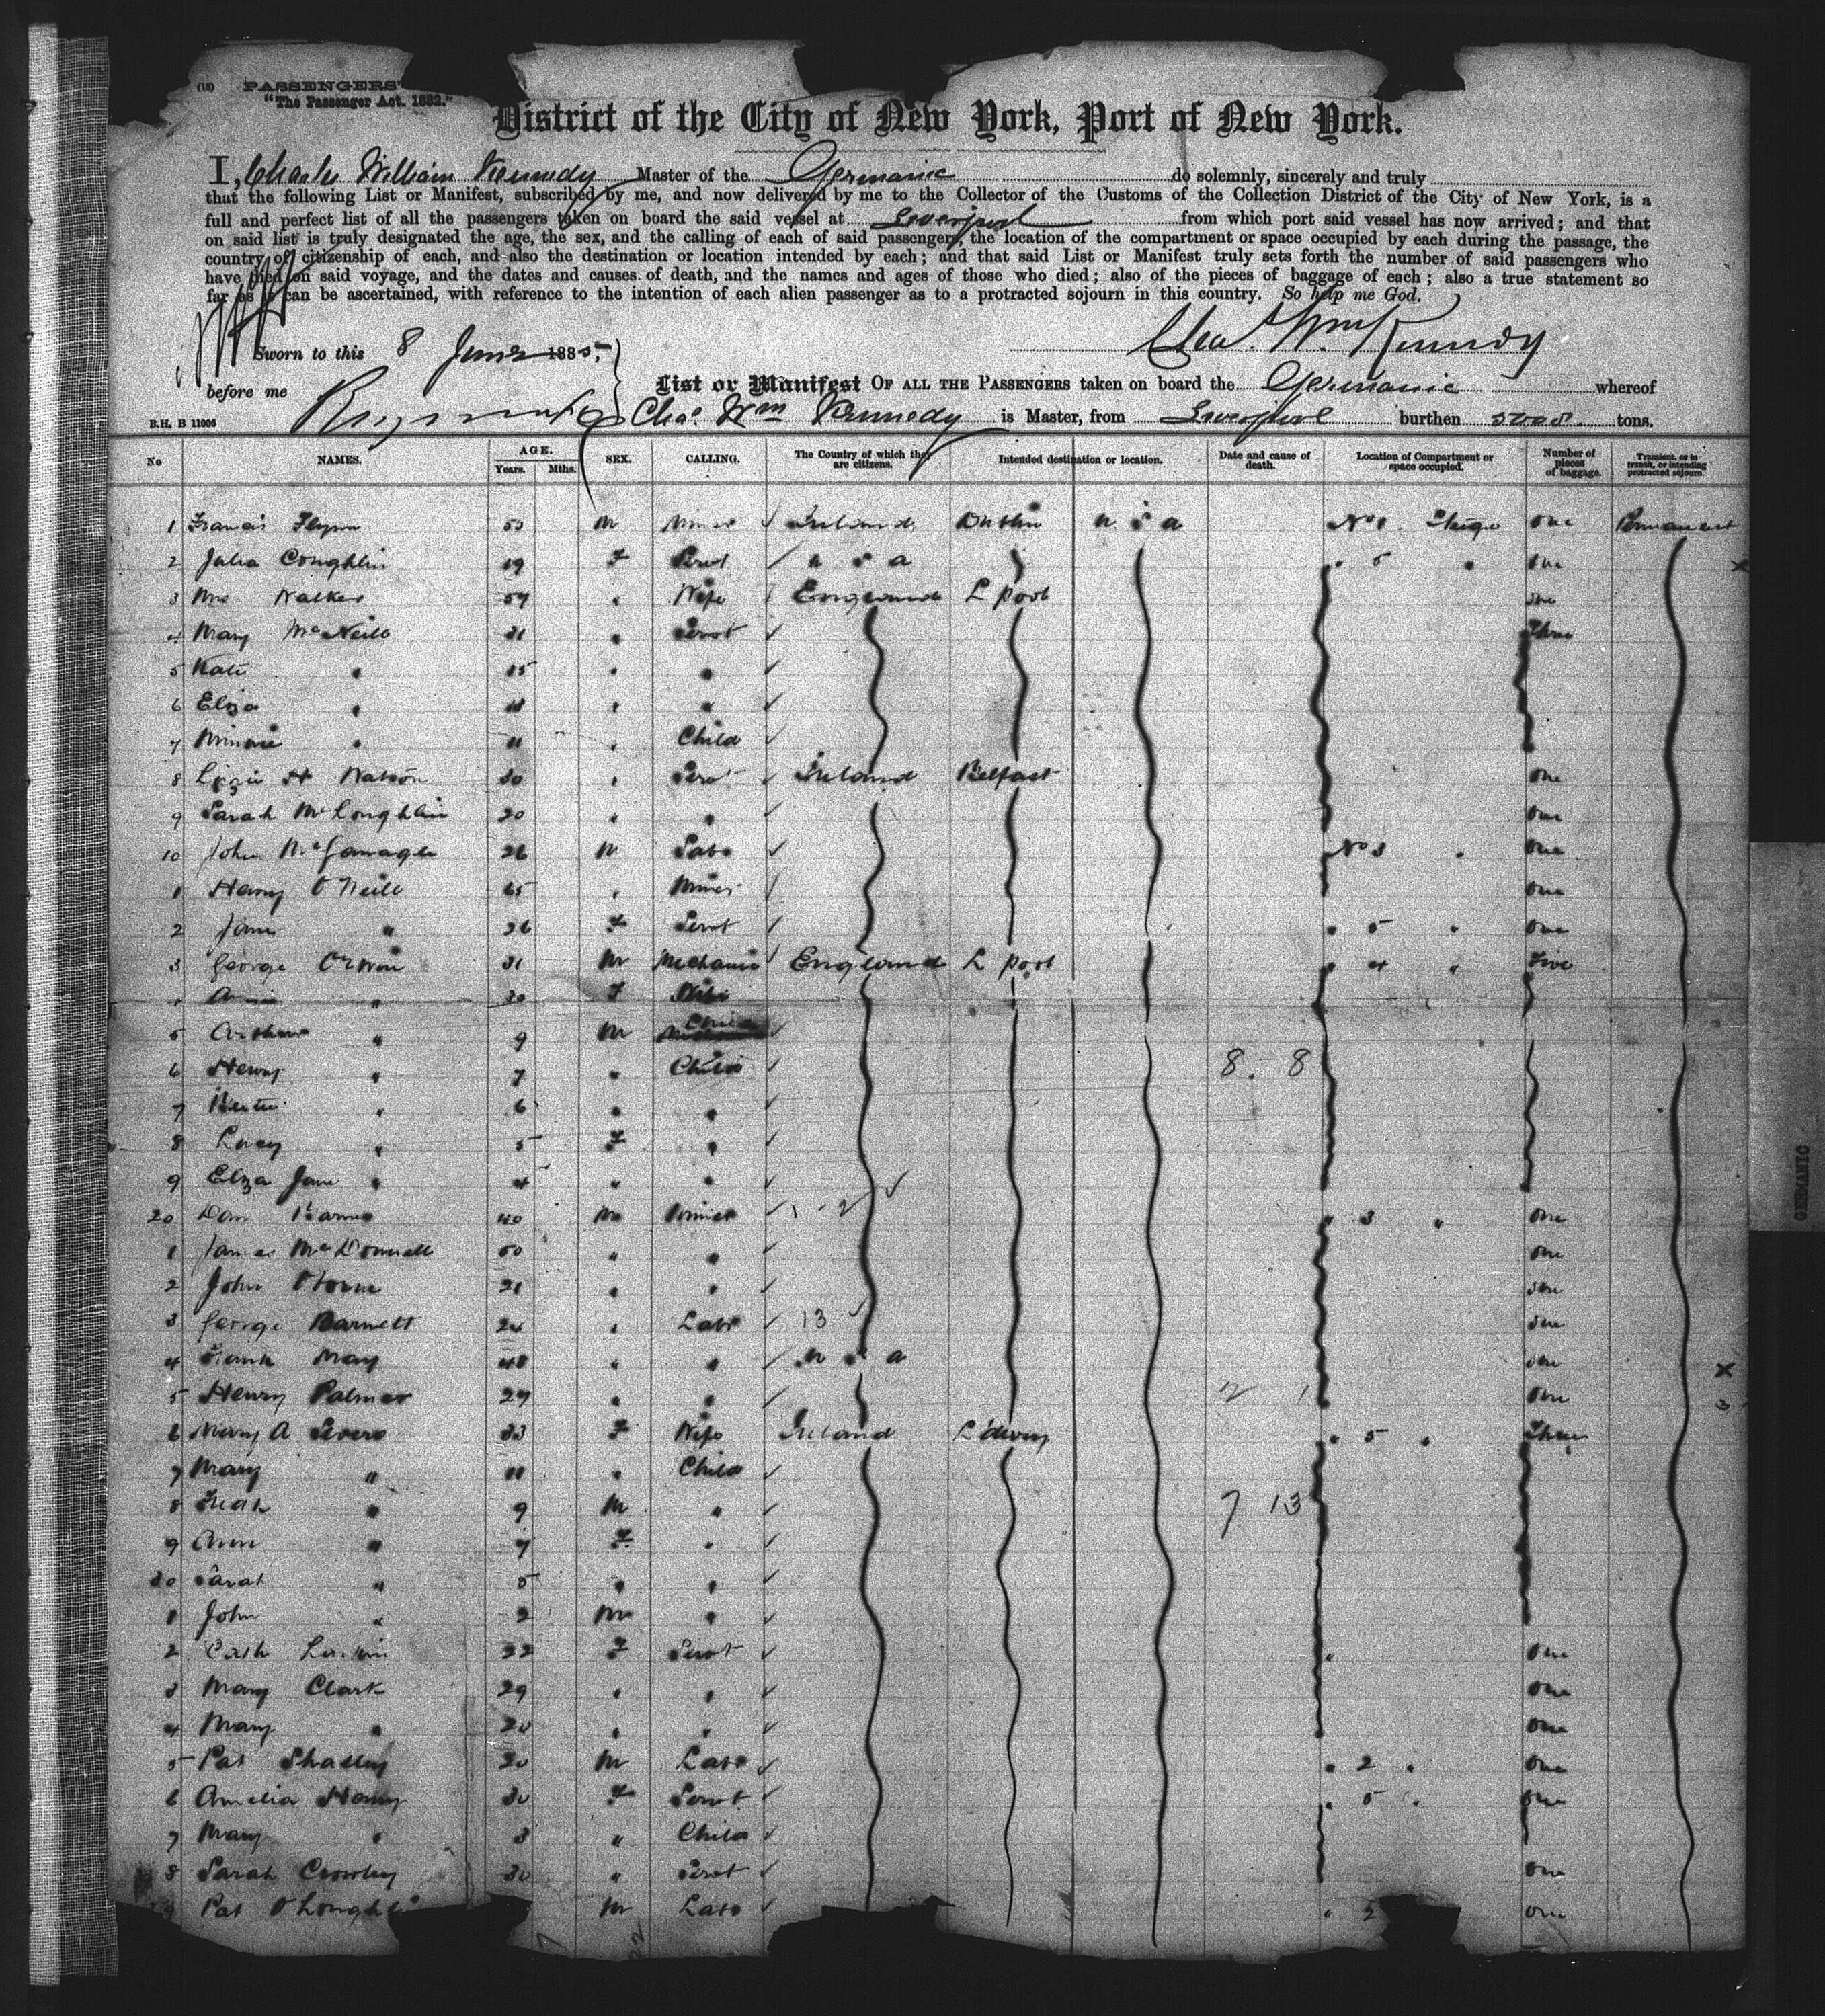 (18) PASSENGERS'
"The Passenger Act. 1882."
District of the City of New York, Port of New York.
I, Charles William Kennedy Master of the Germanic do solemnly, sincerely and truly
that the following List or Manifest, subscribed by me, and now delivered by me to the Collector of the Customs of the Collection District of the City of New York, is a
full and perfect list of all the passengers taken on board the said vessel at Liverpool from which port said vessel has now arrived; and that
on said list is truly designated the age, the sex, and the calling of each of said passengers, the location of the compartment or space occupied by each during the passage, the
country of citizenship of each, and also the destination or location intended by each; and that said List or Manifest truly sets forth the number of said passengers who
have died on said voyage, and the dates and causes of death, and the names and ages of those who died; also of the pieces of baggage of each; also a true statement so
far as it can be ascertained, with reference to the intention of each alien passenger as to a protracted sojourn in this country. So help me God.
Sworn to this 8 June 1885, Chas. Wm Kennedy
before me List or Manifest OF ALL THE PASSENGERS taken on board the Germanic whereof
B.H. B 11006 Chas. Wm Kennedy is Master, from Liverpool burthen 5008 tons.
No NAMES. AGE. Years. Mths. SEX. CALLING. The Country of which they are citizens. Intended destination or location. Date and cause of death. Location of Compartment or space occupied. Number of pieces of baggage. Transient, or in transit, or intending protracted sojourn
1 Francis Flynn M Miner Ireland Dublin U S A No 1 Stege One Permanent
2 Julia Coughlin 19 F Servt U S A " 5 " One
3 Mrs Walker " Wife England L pool One
4 Mary McNeill 21 " Servt Three
5 Kate " 15 " "
6 Eliza " " "
7 Minnie " 11 " Child
8 Lizzie H Watson 30 " Servt Ireland Belfast One
9 Sarah McLoughlin 20 " " One
10 John McGonagle 26 M Labr No 3 " One
1 Henry O'Neill 65 " Miner One
2 Jane " 26 F Servt " 5 " One
3 George 31 M Mechanic England L pool " 4 " Five
4 Annie " 30 F Wife
5 Arthur " 9 M Child
6 Henry " 7 " Child 8.-8
7 " 6 " "
8 Lucy " 5 F "
9 Eliza Jane " 4 " "
20 Dan 40 M Miner " 3 " One
1 James McDonnell 50 " " One
2 John 21 " " One
3 George Barnett 24 " Labr 13 One
4 Frank May 48 " " U S A One
5 Henry Palmer 29 " " One
6 Mary A 33 F Wife Ireland L'derry " 5 " Three
7 Mary " 11 " Child
8 " 9 M " 7 13
9 Ann " 7 F "
30 Sarah " 5 " "
1 John " 2 M "
2 Cath 22 F Servt " One
3 Mary Clark 29 " " One
4 Mary " 20 " " One
5 Pat 20 M Labr " 2 " One
6 Amelia 30 F Servt " 5 " One
7 Mary " 3 " Child
8 Sarah Crowley 30 " Servt One
9 Pat O'Loughlin M Labr " 2 One
GERMANIC